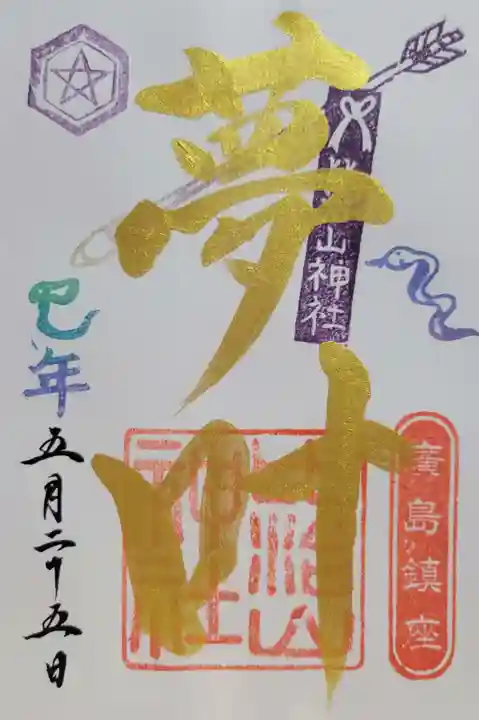 廣島鎮座
山神社
夢叶
比治山
神社
巳年
五月二十五日